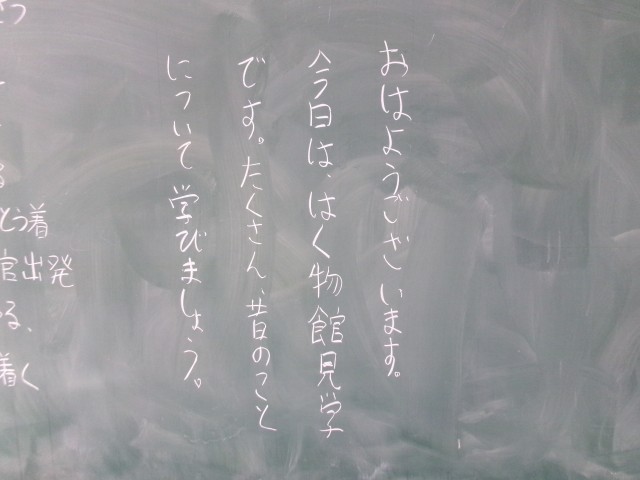 おはようございます。
今日は、はく物館見学
です。たくさん、昔のこと
について学びましょう。
とう着
官出発
る、
着く